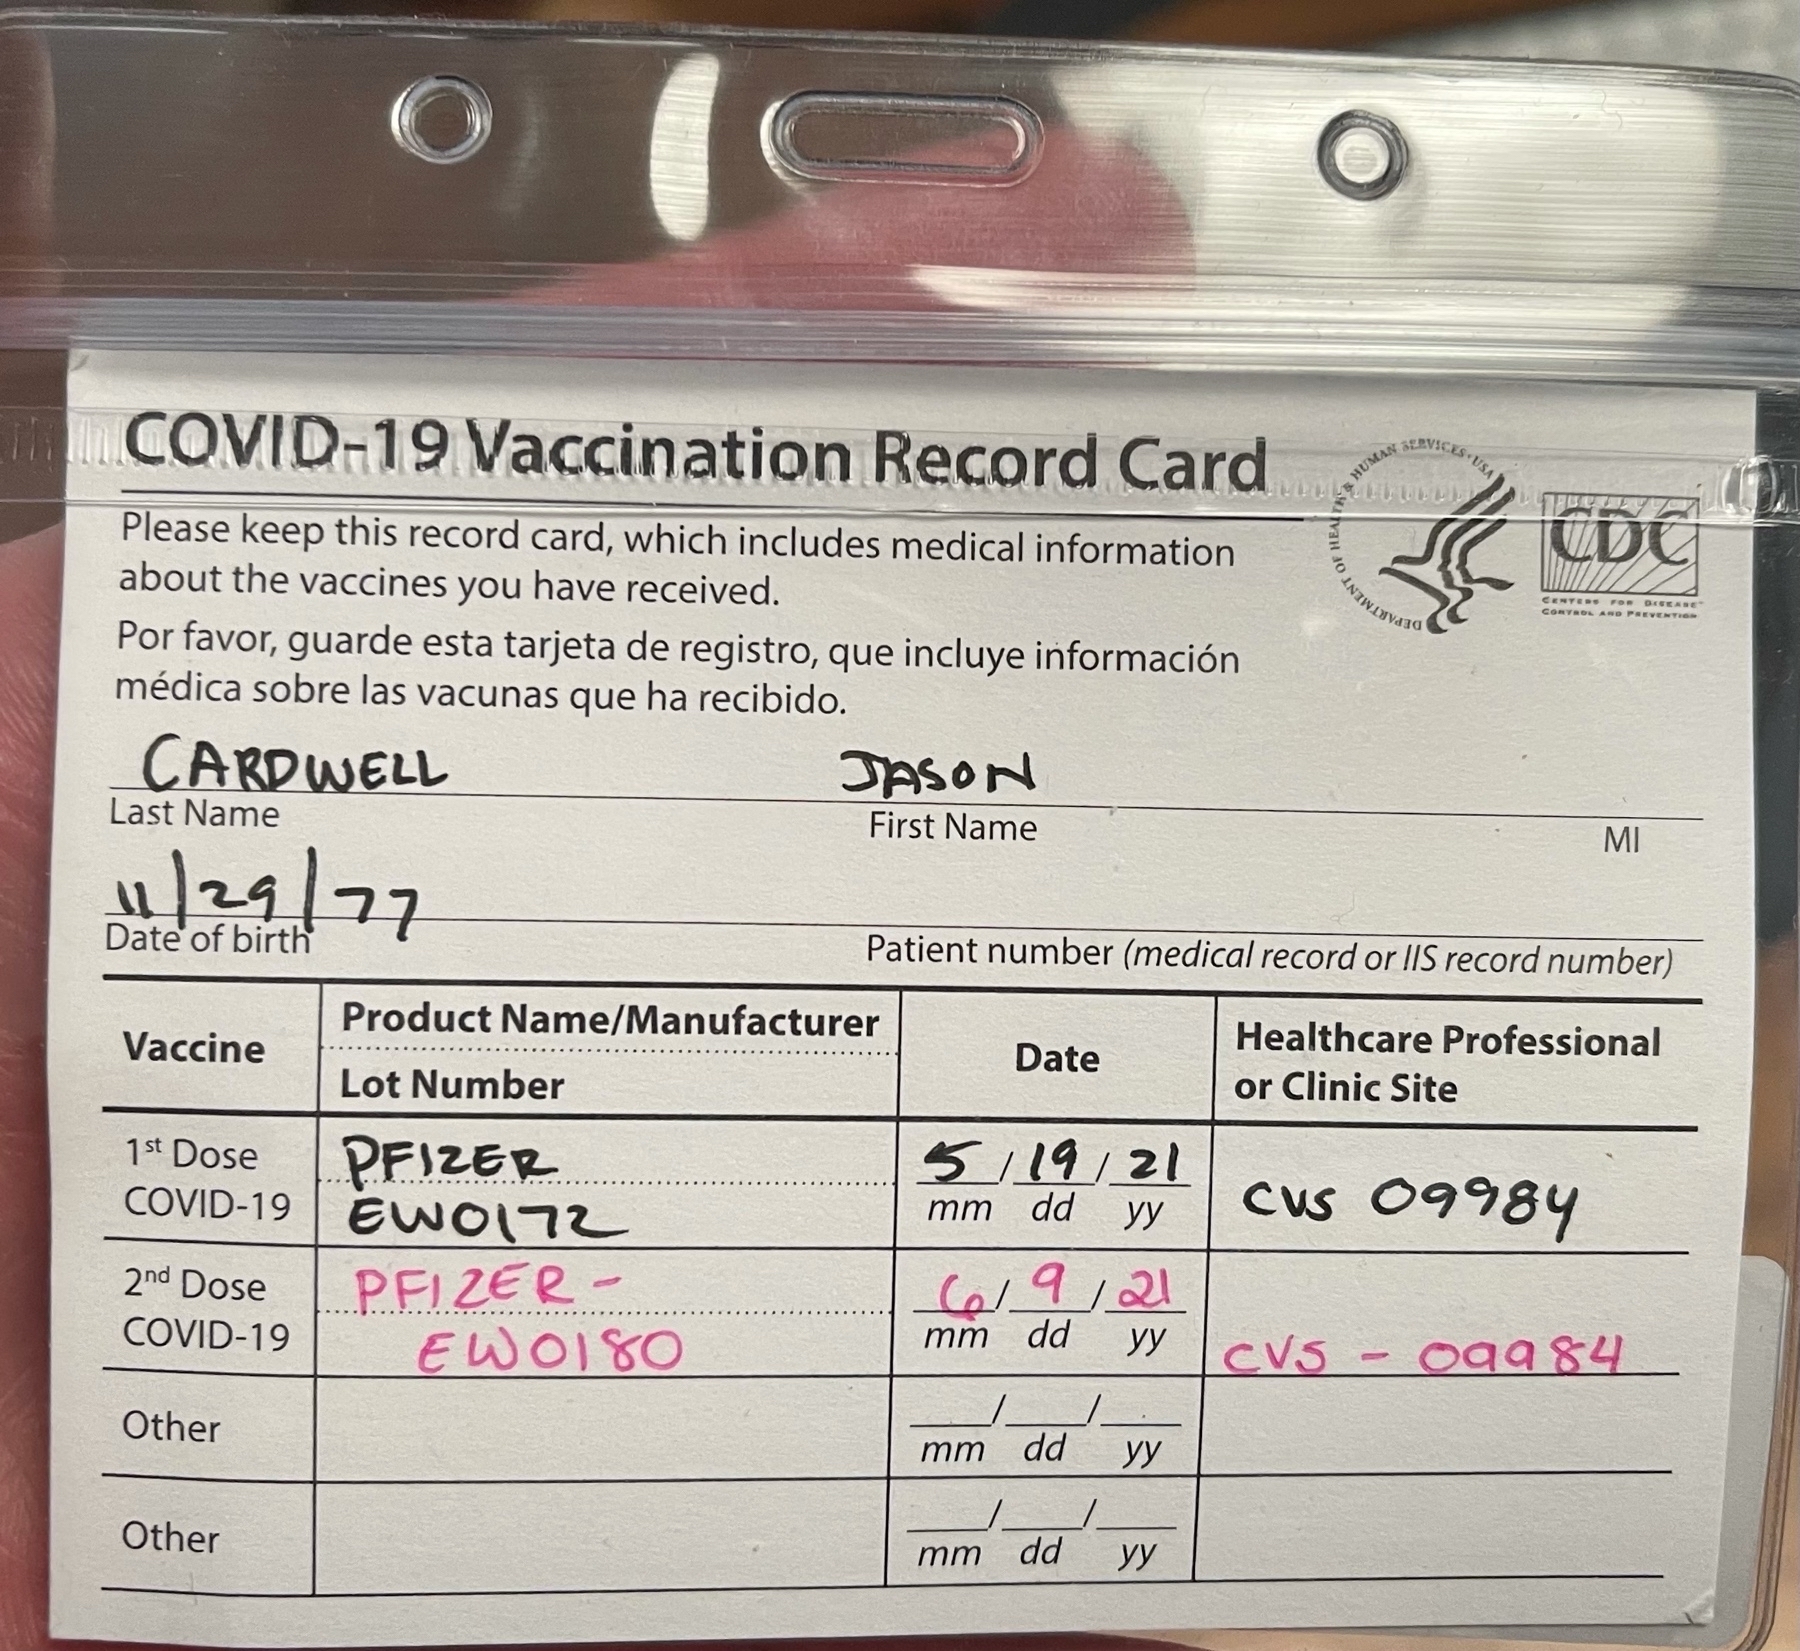 COVID-19 Vaccination Record Card
Please keep this record card, which includes medical information
about the vaccines you have received.
Por favor, guarde esta tarjeta de registro, que incluye información
médica sobre las vacunas que ha recibido.
DEPARTMENT OF HEALTH & HUMAN SERVICES · USA
CDC
CENTERS FOR DISEASE
CONTROL AND PREVENTION
CARDWELL JASON
Last Name First Name MI
11/29/77
Date of birth Patient number (medical record or IIS record number)
Vaccine
Product Name/Manufacturer
Lot Number
Date
Healthcare Professional
or Clinic Site
1st Dose
COVID-19
PFIZER
EW0172
5 / 19 / 21
mm dd yy
CVS 09984
2nd Dose
COVID-19
PFIZER -
EW0180
6 / 9 / 21
mm dd yy
CVS - 09984
Other
___/___/___
mm dd yy
Other
___/___/___
mm dd yy